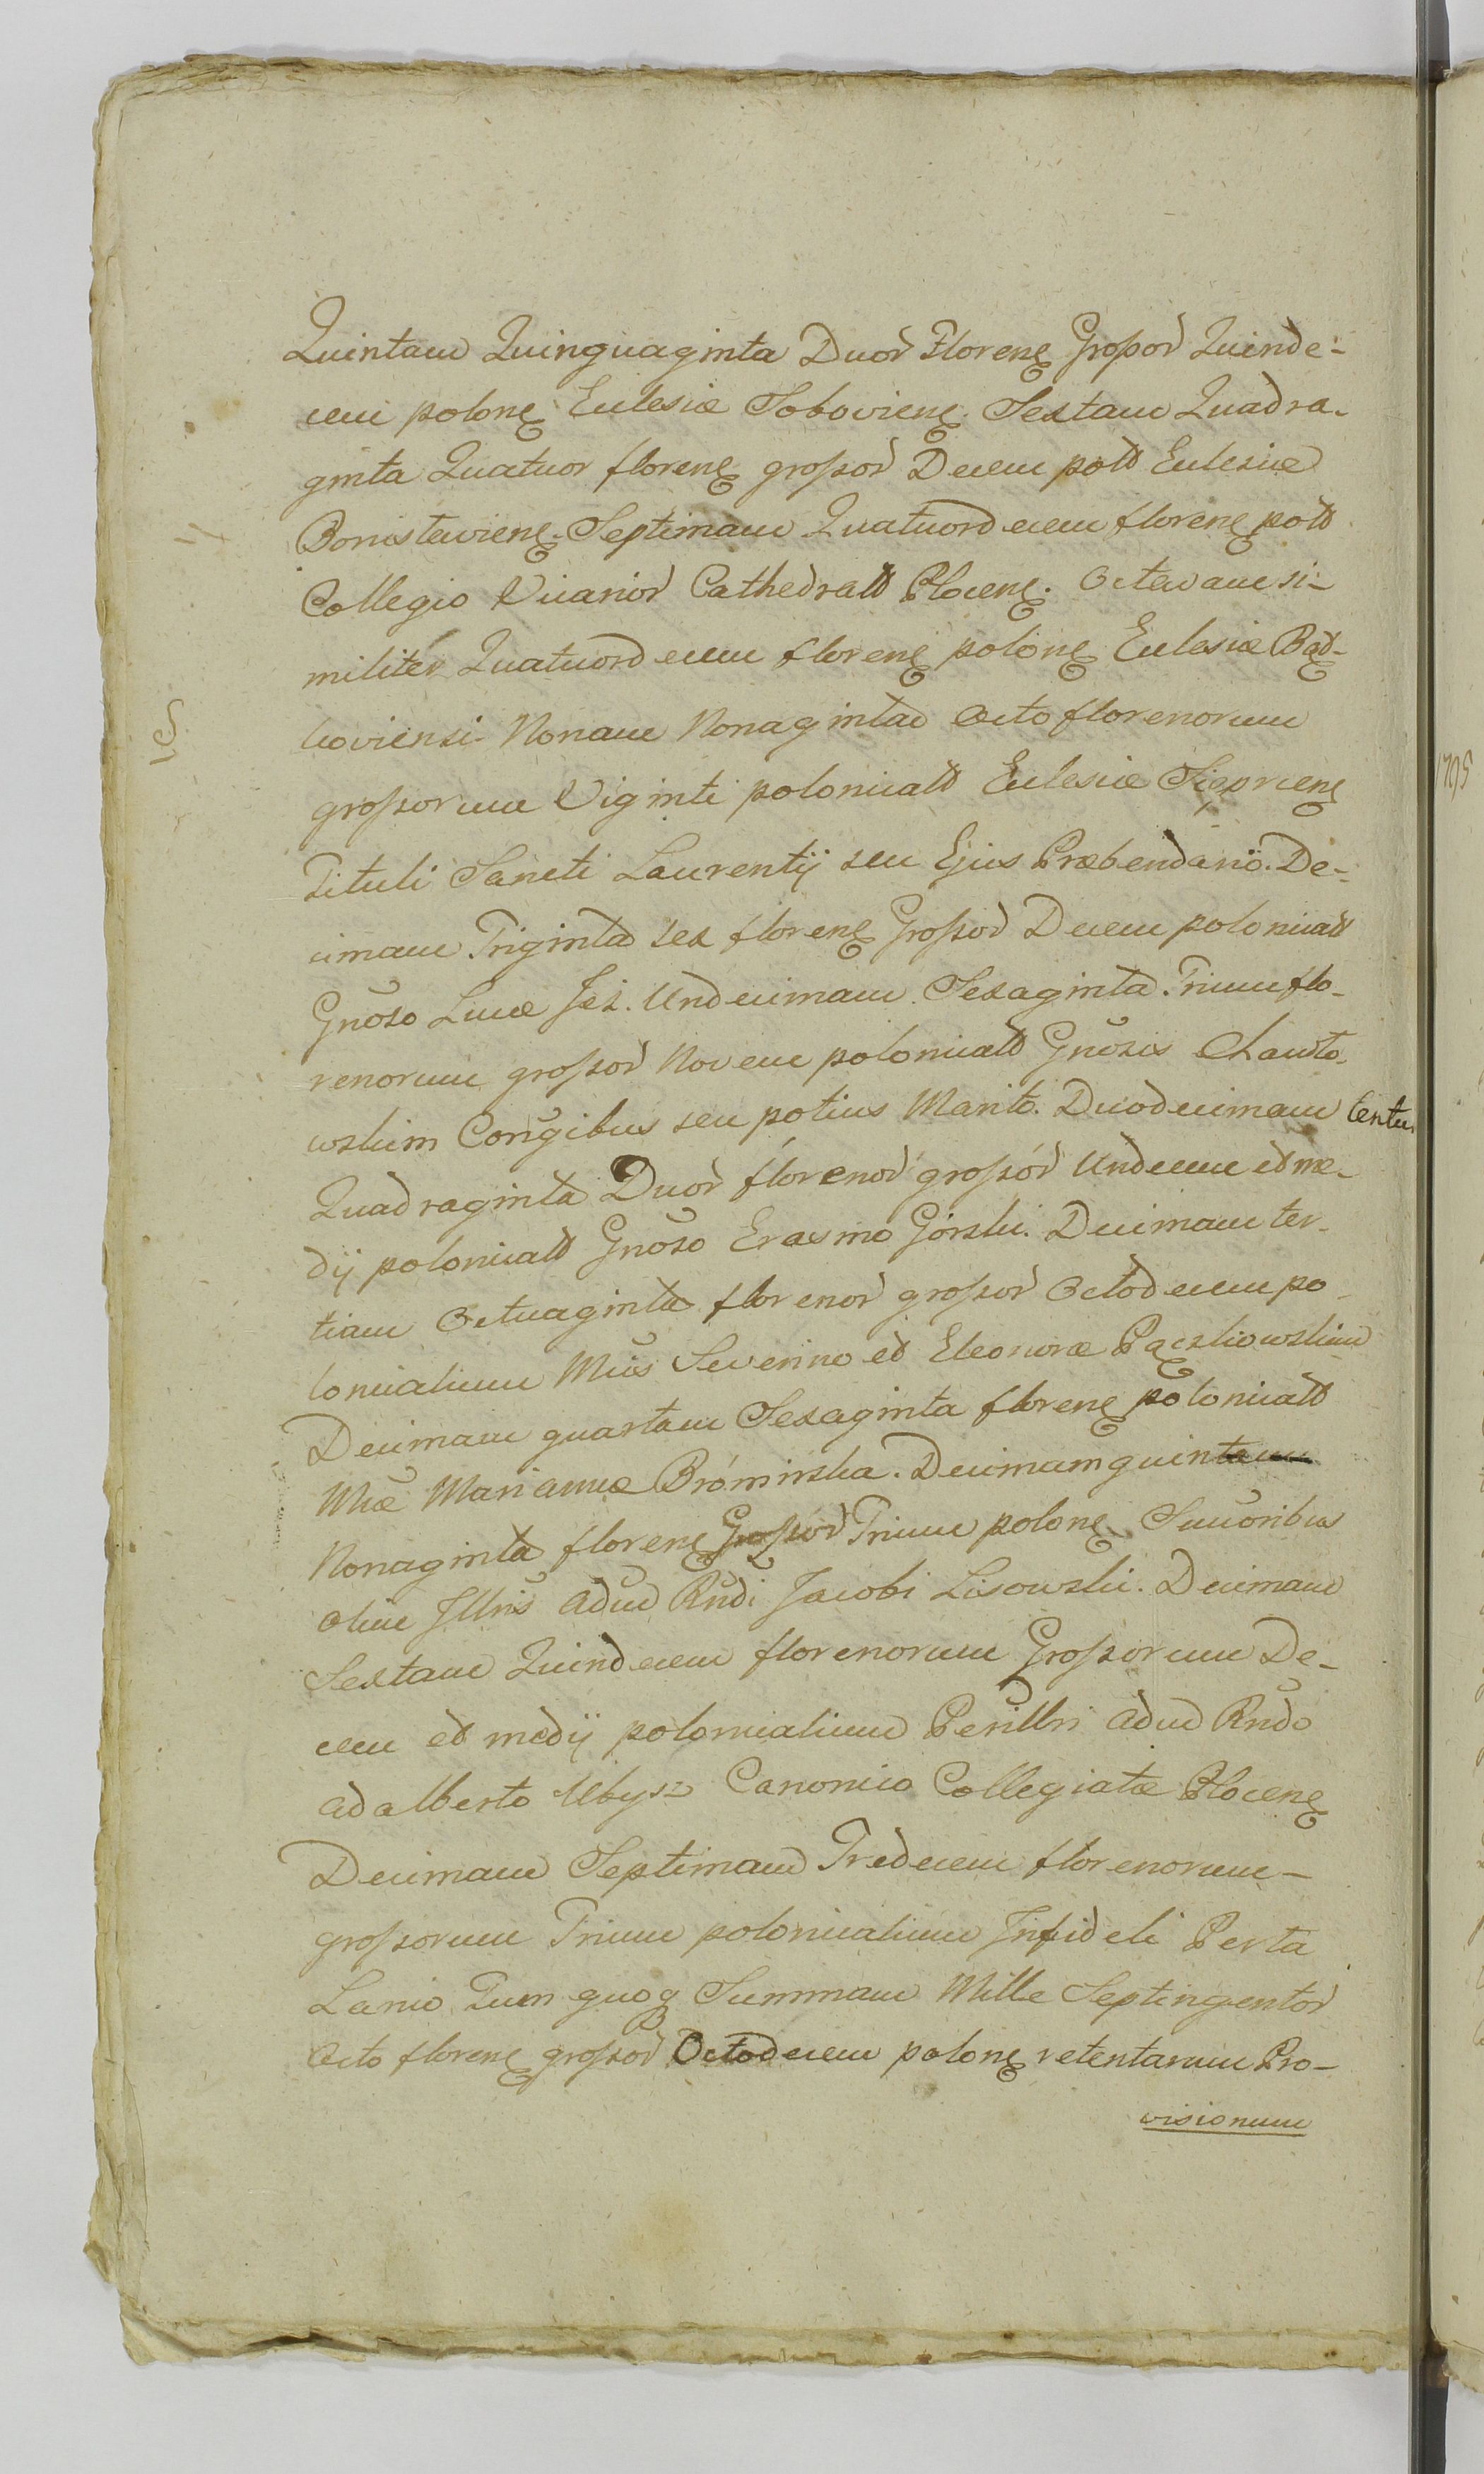 Quintam Quinquaginta Duor Floren Grossor Quinde-
cem polon Eclesiæ Soboviens. Sextam Quadra-
ginta Quatuor floren grossor Decem polt Eclesiæ
Bonislavien. Septimam Quatuordecem floren polt
Collegio Vicarior Cathedralt Plocen. Octavam si-
militer Quatuordecem floren polon Eclesiæ Bąd-
koviensi Nonam Nonaginta Octo florenorum
grossorum Viginti polonicalt Eclesiæ Sieprcen
Tituli Sancti Laurentij seu Ejus Præbendario. De-
cimam Triginta sex floren Grossor Decem polonicalt
Gnoso Lucæ Jeż. Undecimam Sexaginta Trium flo-
renorum grossor Novem polonicalt Gnosis Chawto-
wskim Conjugibus seu potius Marito. Duodecimam
Quadraginta Duor florenor grossor Undecem et me-
dij polonicalt Gnoso Erasmo Górski. Decimam ter-
tiam Octuaginta florenor grossor Octodecem po-
lonicalium Mcis Severino et Eleonoræ Pączkowskim
Decimam quartam Sexaginta floren polonicalt
Mcæ Mariannæ Brómirska. Decimam quintam
Nonaginta floren Grossor Trium polon Sucoribus
olim Illris Adm Rndi Jacobi Lisowski. Decimam
Sextam Quindecem florenorum Grossorum De-
cem et medij polonicalium Perillri Adm Rndo
Adalberto Ubysz Canonico Collegiatæ Plocen
Decimam Septimam Tredecem florenorum-
grossorum Trium polonicalium Infideli Berta
Lanio Tum quoq Summam Mille Septingentor
Octo floren grossor Octodecem polon retentarum Pro-
visionum
1795